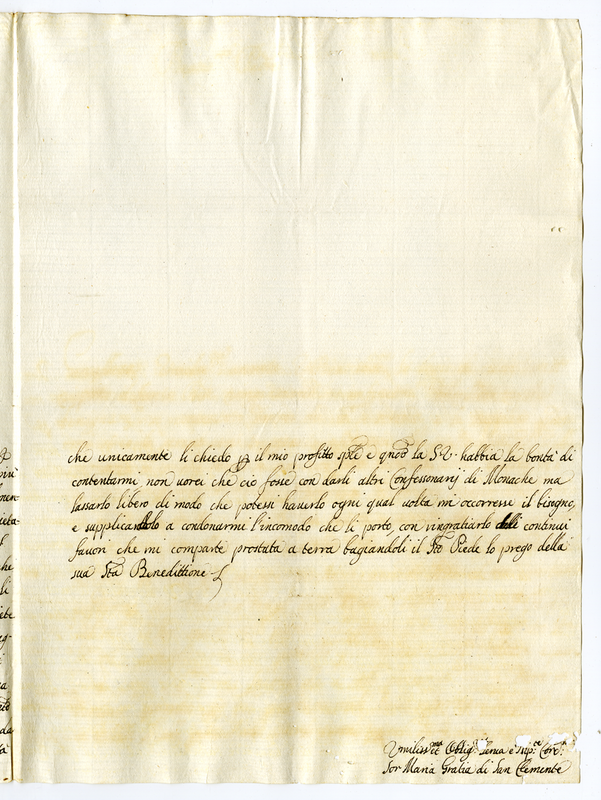 che unicamente li chiedo p il mio profitto sple e qndo la S.V. habbia la bontà di
contentarmi non vorei che ciò fosse con darli altri Confessonarij di Monache ma
lassarlo libero di modo che potessi haverlo ogni qual volta mi occorresse il bisogno,
e supplicandolo a condonarmi l'incomodo che li porto, con ringratiarlo delli continui
favori che mi comparte prostata a terra bagiandoli il Sto Piede lo prego della
sua Sta Benedittione
Umiliss.ma et Obblig.ma Serva e
Sor Maria Gratia di San Clemente